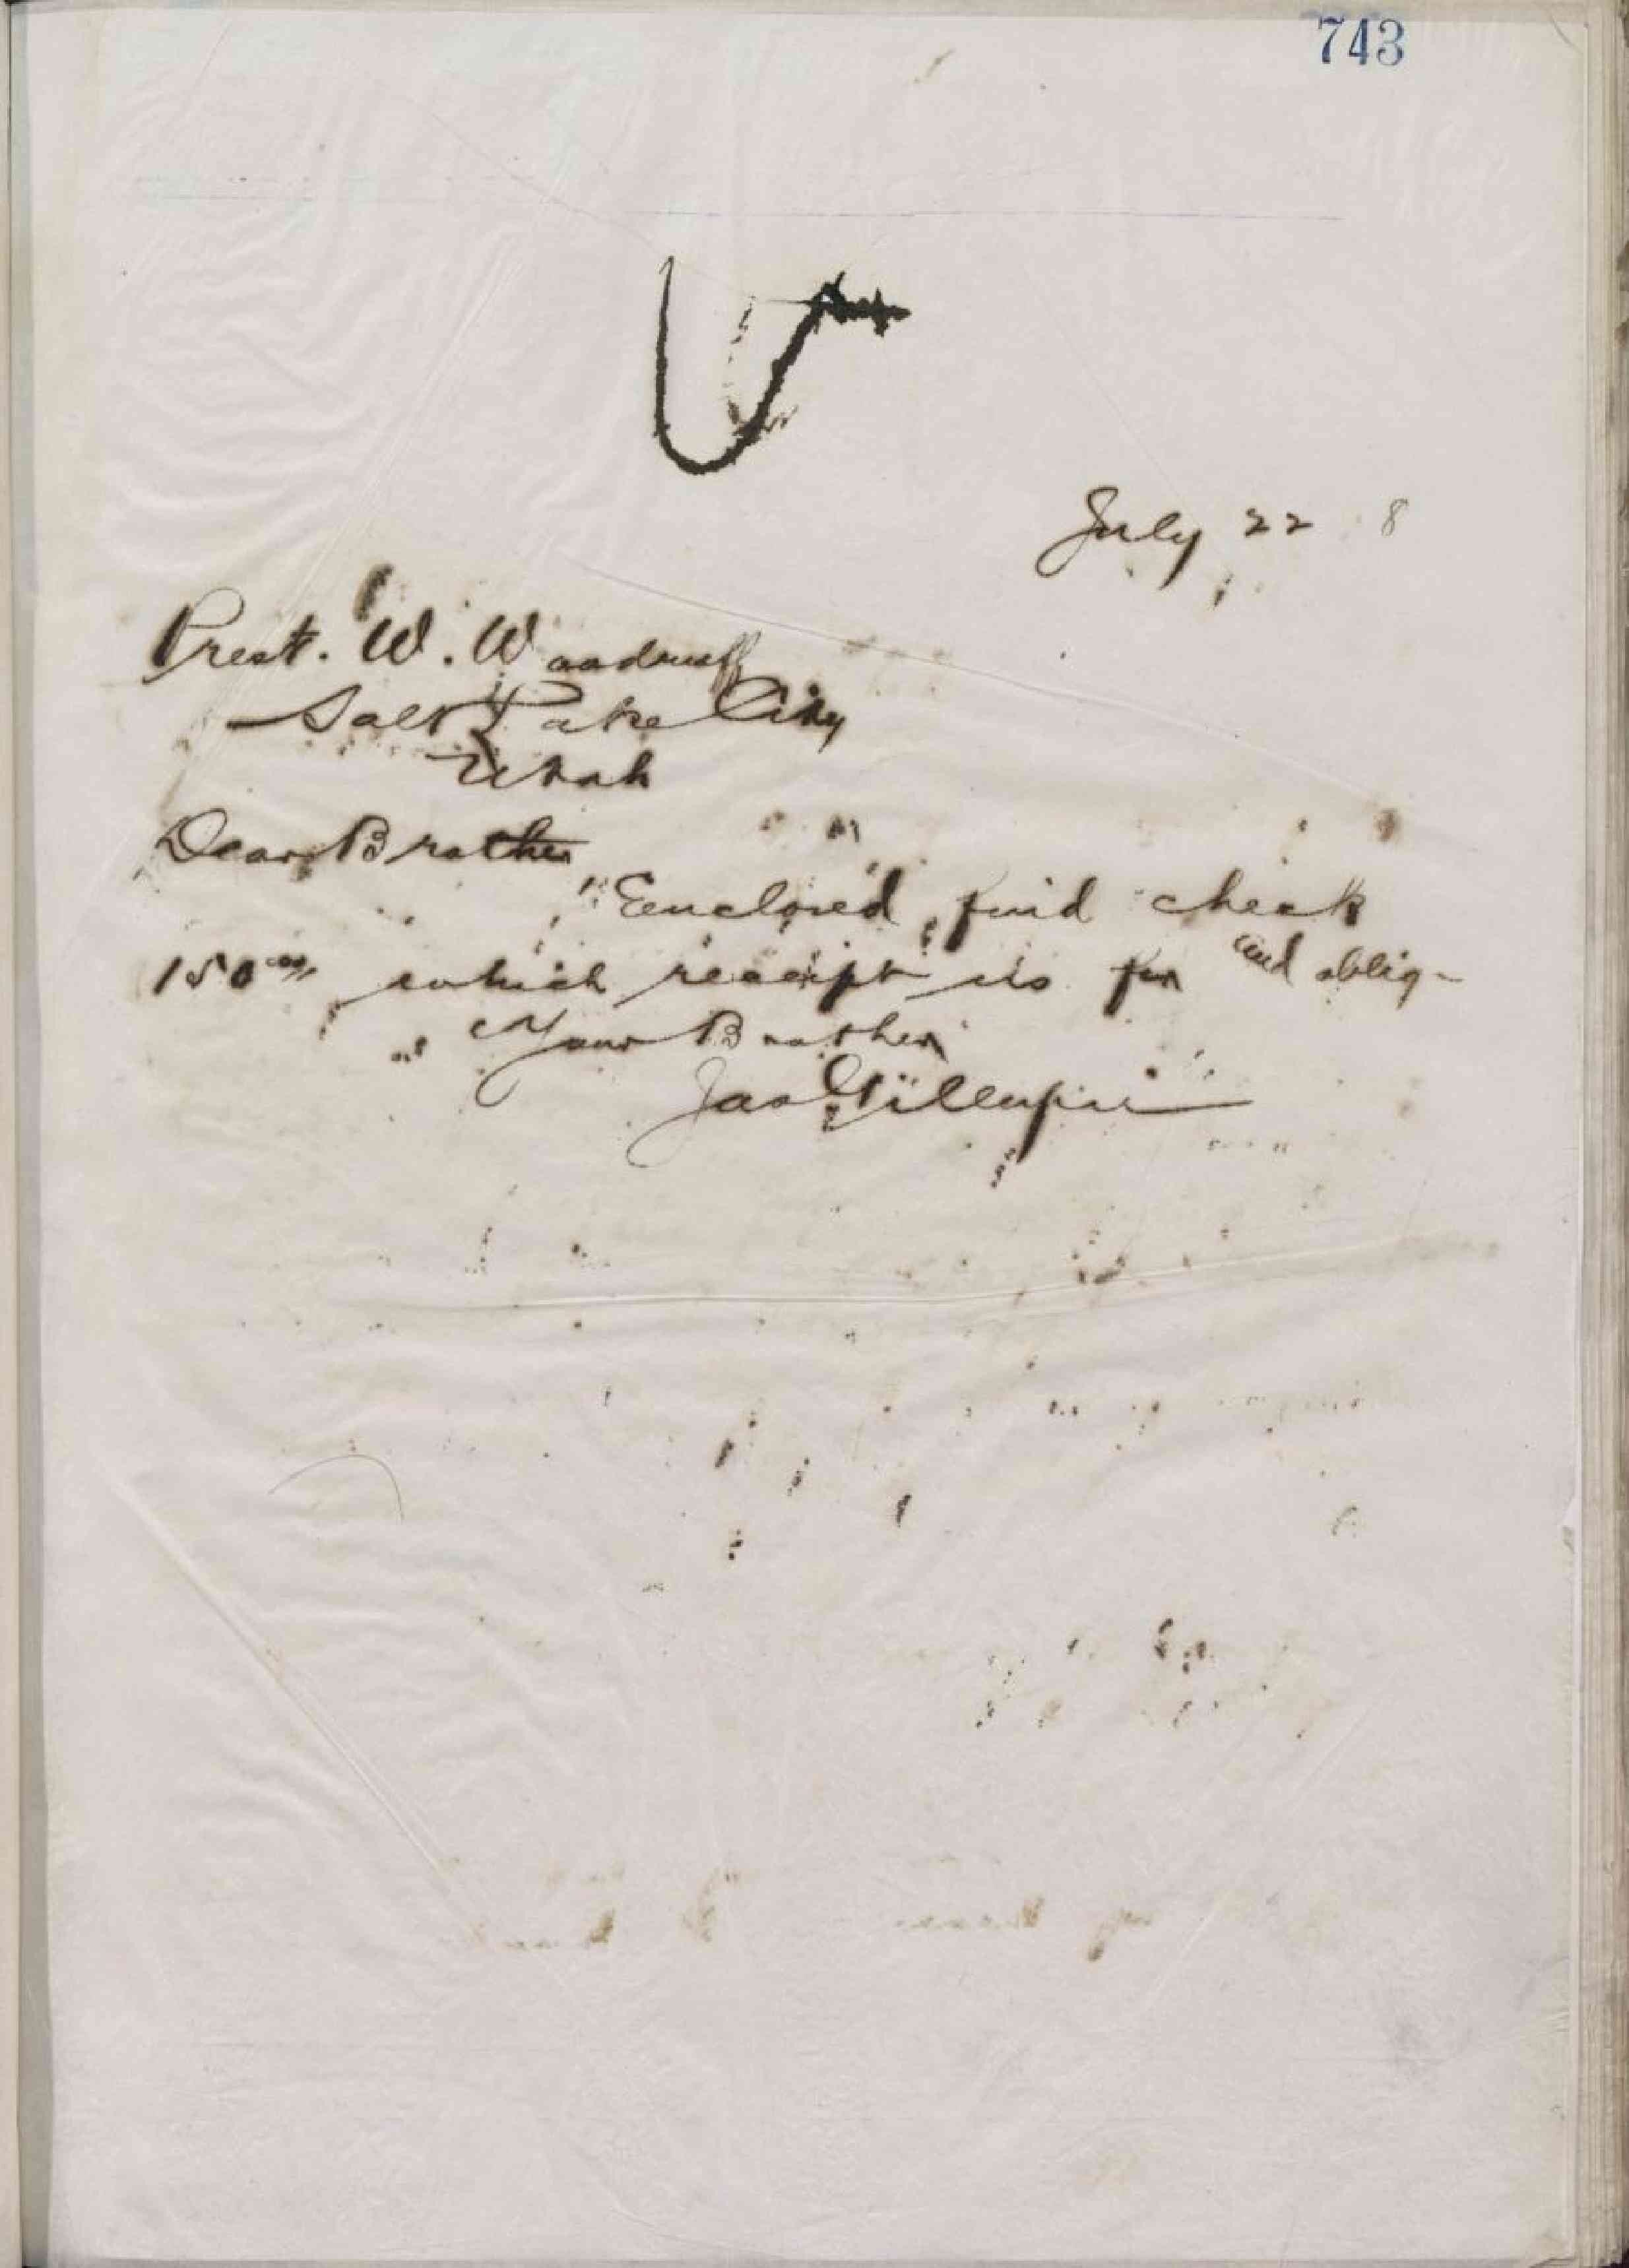 743
July 22 8
Prest. W. Woodruff
Salt Lake City
Utah
Dear Brother
Enclosed find check
150 00/ which receipt us for and oblig-
Your Brother
Jas Gillespie